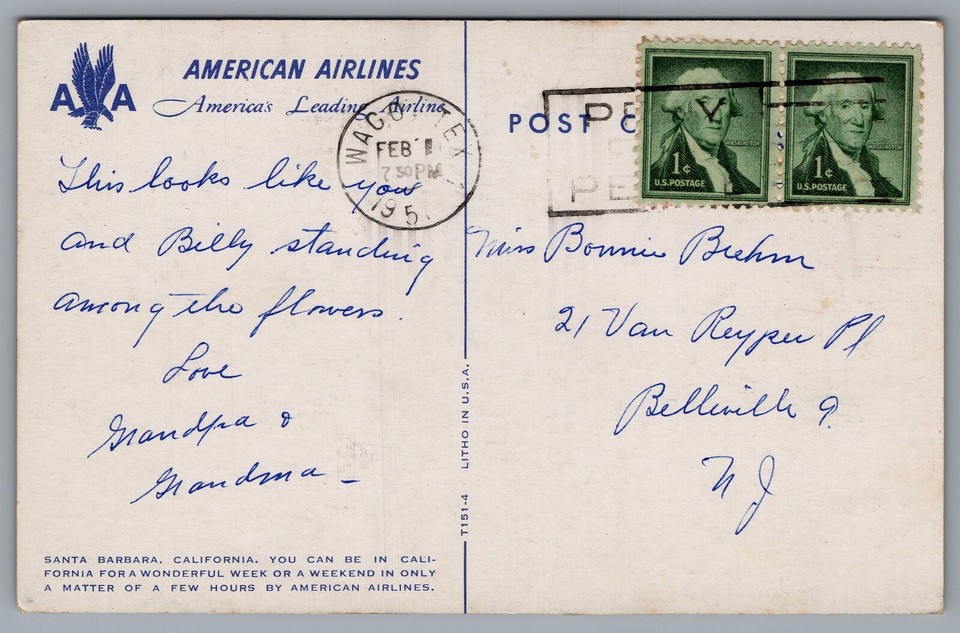 AMERICAN AIRLINES
A A
America's Leading Airline
WACO, TEX
FEB
7:30 PM
195
POST C
1¢
U.S. POSTAGE
WASHINGTON
1¢
U.S. POSTAGE
WASHINGTON
This looks like you
and Billy standing
among the flowers.
Love
Grandpa &
Grandma
Miss Bonnie Brehm
21 Van Reyper Pl
Belleville 9.
N J
T151-4 LITHO IN U.S.A.
SANTA BARBARA, CALIFORNIA. YOU CAN BE IN CALI-
FORNIA FOR A WONDERFUL WEEK OR A WEEKEND IN ONLY
A MATTER OF A FEW HOURS BY AMERICAN AIRLINES.